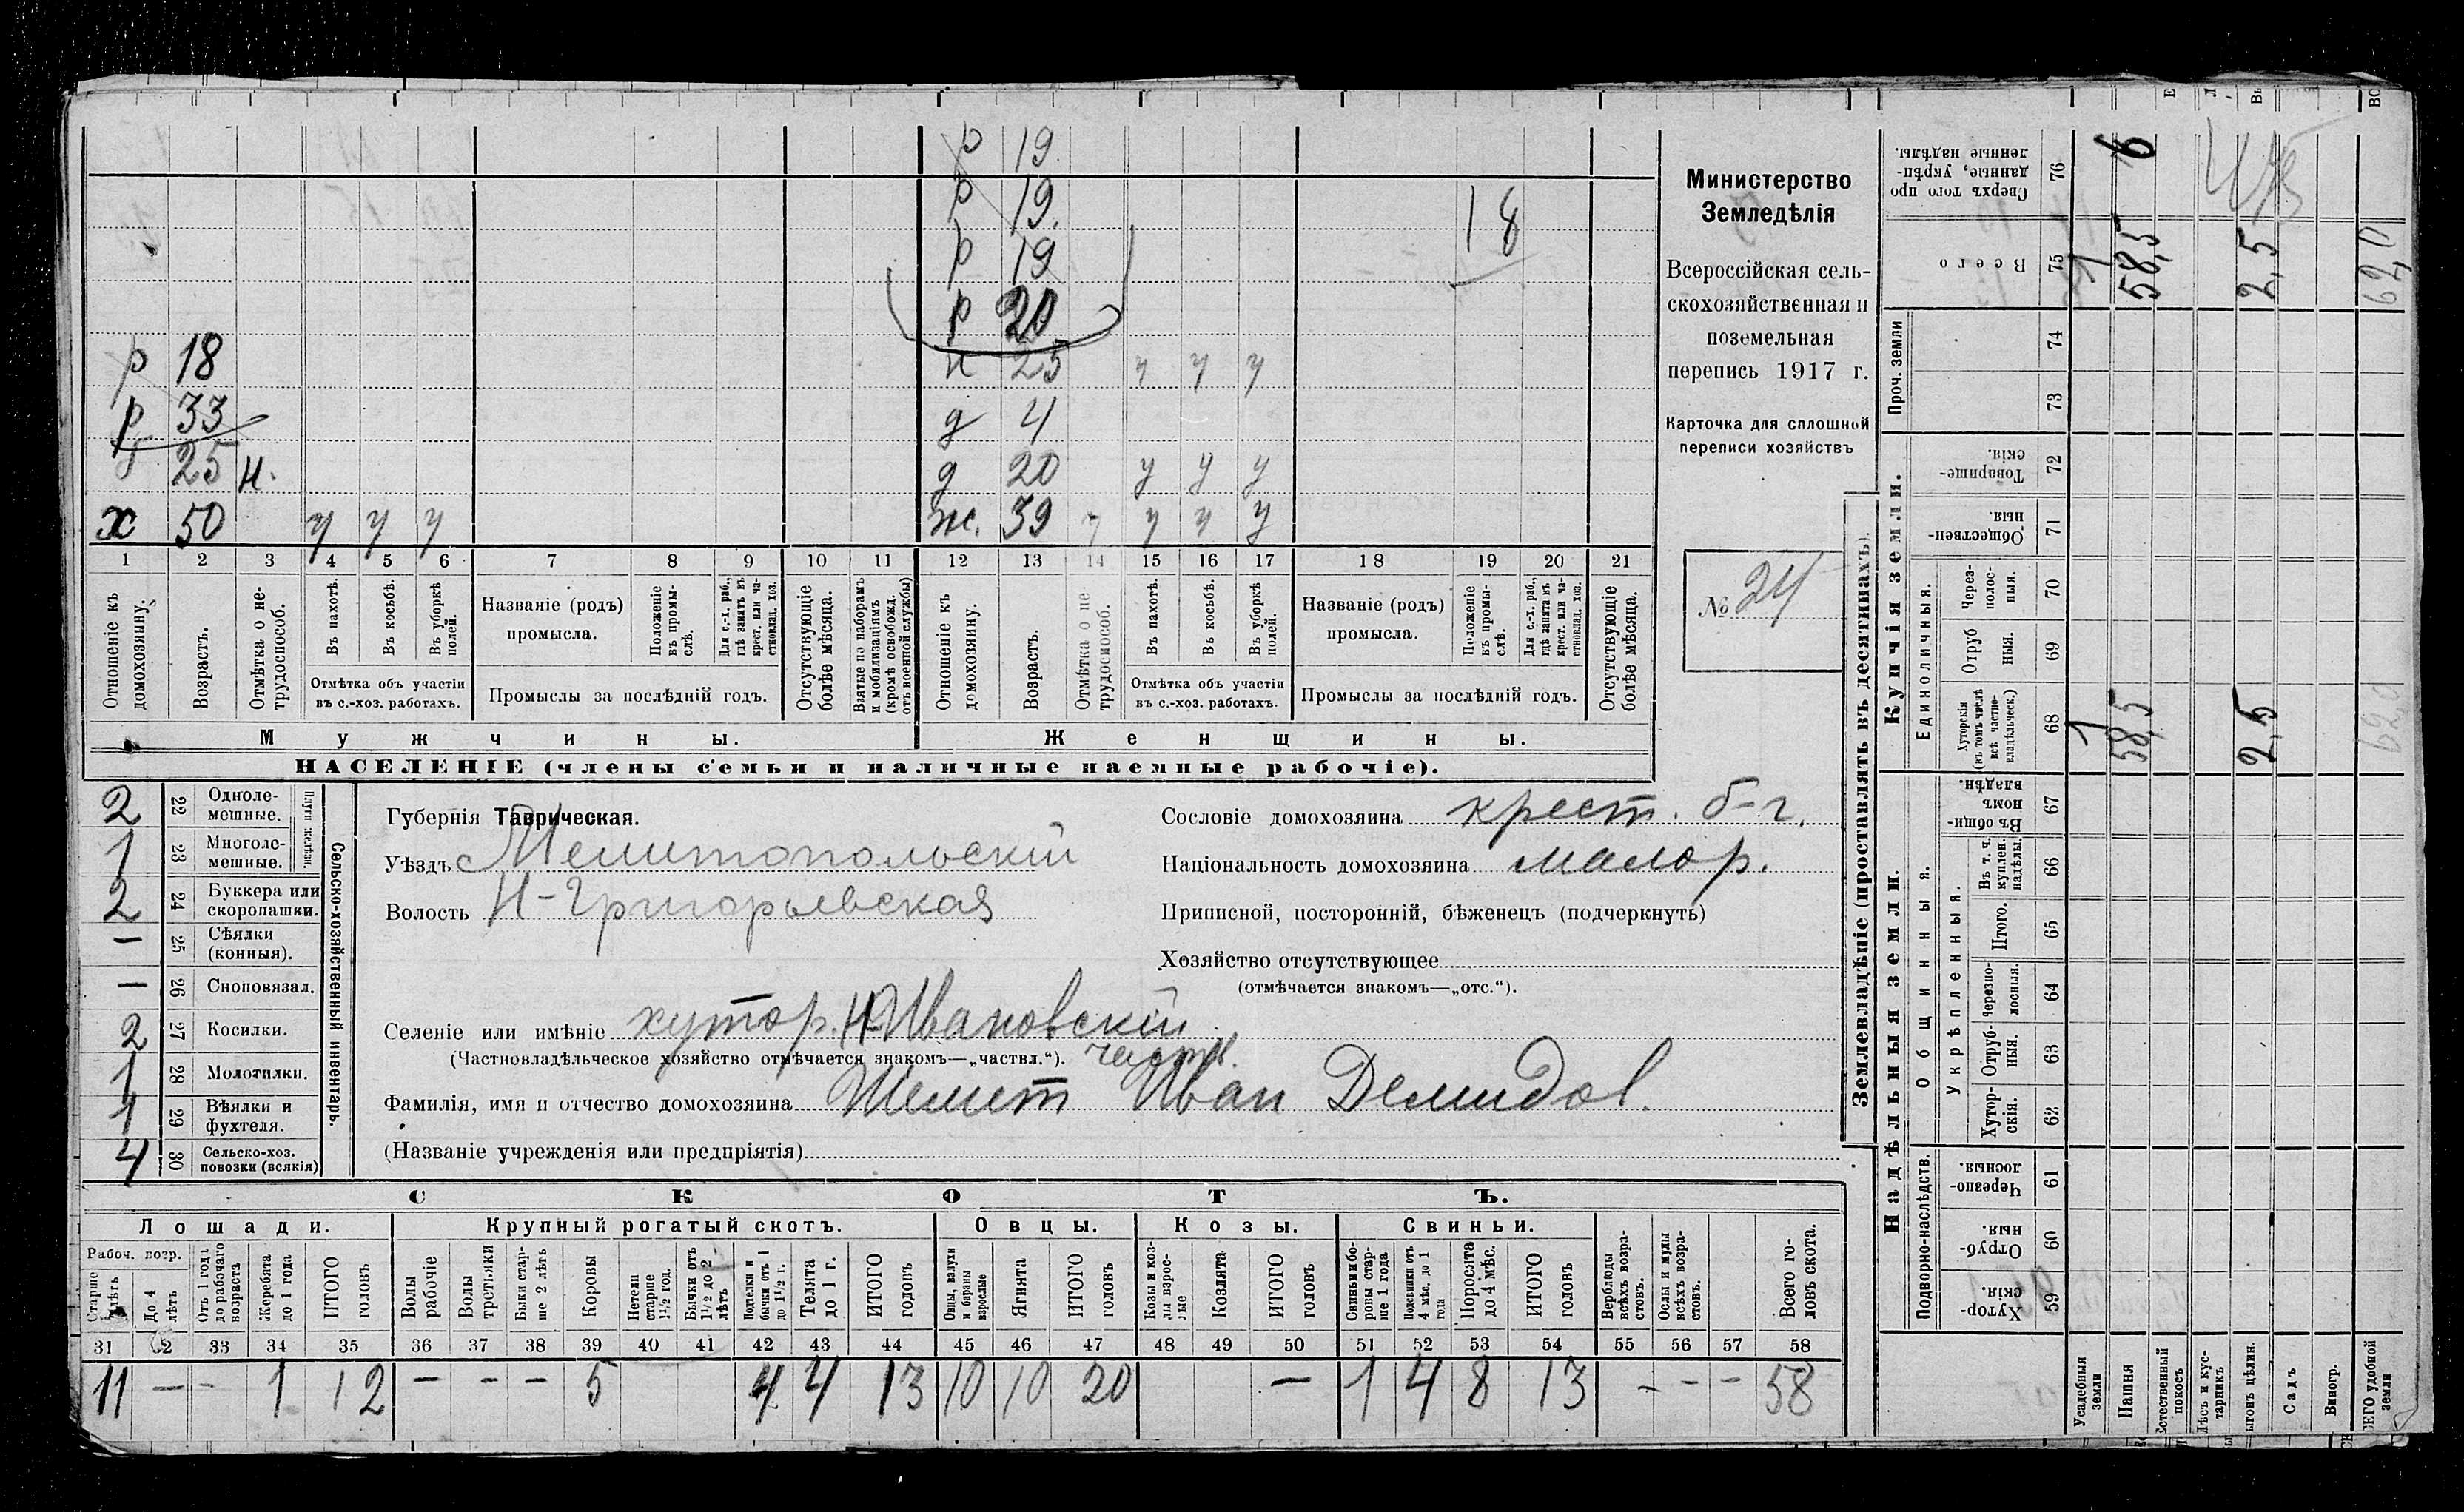 р 19
р 19
р 19
р 20
18
р 18
р 33
25 н.
25 у у у
д 4
д 20 у у у
х 50 у у у
ж. 39 у у у
1 2 3 4 5 6 7 8 9 10 11 12 13 14 15 16 17 18 19 20 21
Отношеніе къ домохозяину.
Возрастъ.
Отмѣтка о нетрудоспособ.
Въ пахотѣ.
Въ косьбѣ.
Въ уборкѣ полей.
Отмѣтка объ участіи въ с.-хоз. работахъ.
Названіе (родъ) промысла.
Положеніе въ промыслѣ.
Для с.-х. раб., гдѣ занятъ въ крест. или частновлад. хоз.
Промыслы за послѣдній годъ.
Отсутствующіе болѣе мѣсяца.
Взятые по наборамъ и мобилизаціямъ (кромѣ освобожд. отъ военной службы)
Отношеніе къ домохозяину.
Возрастъ.
Отмѣтка о нетрудоспособ.
Въ пахотѣ.
Въ косьбѣ.
Въ уборкѣ полей.
Отмѣтка объ участіи въ с.-хоз. работахъ.
Названіе (родъ) промысла.
Положеніе въ промыслѣ.
Для с.-х. раб., гдѣ занята въ крест. или частновлад. хоз.
Промыслы за послѣдній годъ.
Отсутствующіе болѣе мѣсяца.
Мужчины.
Женщины.
НАСЕЛЕНІЕ (члены семьи и наличные наемные рабочіе).
Министерство
Земледѣлія
Всероссійская сель-
скохозяйственная и
поземельная
перепись 1917 г.
Карточка для сплошной
переписи хозяйствъ
№ 24
2 22 Одноле-мешные.
1 23 Многоле-мешные.
Плуги желѣзн.
2 24 Буккера или скоропашки.
— 25 Сѣялки (конныя).
— 26 Сноповязал.
2 27 Косилки.
1 28 Молотилки.
1 29 Вѣялки и фухтеля.
4 30 Сельско-хоз. повозки (всякія)
Сельско-хозяйственный инвентарь.
Губернія Таврическая.
Уѣздъ Мелитопольскій
Волость Н-Григорьевская
Сословіе домохозяина крест. б-г.
Національность домохозяина малор.
Приписной, посторонній, бѣженецъ (подчеркнуть)
Хозяйство отсутствующее
(отмѣчается знакомъ—„отс.“).
Селеніе или имѣніе хутор. Н-Ивановскій
(Частновладѣльческое хозяйство отмѣчается знакомъ—„частвл.“).
Фамилія, имя и отчество домохозяина Шемет Иван Демидов.
(Названіе учрежденія или предпріятія)
СКОТЪ.
Лошади.
Крупный рогатый скотъ.
Овцы.
Козы.
Свиньи.
Рабоч. возр.
Старше 4 лѣтъ
До 4 лѣтъ
Отъ 1 года до рабочаго возраста
Жеребята до 1 года
ИТОГО головъ
Волы рабочіе
Волы третьяки
Быки старше 2 лѣтъ
Коровы
Нетели старше 1½ год.
Бычки отъ 1½ до 2 лѣтъ
Подтелки и бычки отъ 1 до 1½ г.
Телята до 1 г.
ИТОГО головъ
Овцы, валухи и бараны взрослые
Ягнята
ИТОГО головъ
Козы и козлы взрослые
Козлята
ИТОГО головъ
Свиньи и бороны старше 1 года
Подсвинки отъ 4 мѣс. до 1 года
Поросята до 4 мѣс.
ИТОГО головъ
Верблюды всѣхъ возрастовъ.
Ослы и мулы всѣхъ возрастовъ.
Всего головъ скота.
31 32 33 34 35 36 37 38 39 40 41 42 43 44 45 46 47 48 49 50 51 52 53 54 55 56 57 58
11 — - 1 12 — - — 5 4 4 13 10 10 20 — 1 4 8 13 - - - 58
Землевладѣніе (проставлять въ десятинахъ).
Купчія земли.
Надѣльныя земли.
Проч. земли
Единоличныя.
Общинныя.
Укрѣпленныя.
Подворно-наслѣдств.
76 Сверхъ того проданные, укрѣпленные надѣлы.
75 Всего
74
73
72 Товарищескія.
71 Общественныя.
70 Черезполосныя.
69 Отрубныя.
68 Хуторскія (въ томъ числѣ всѣ частновладѣльческ.)
67 Въ общиномъ владѣн.
66 Въ т. ч. куплен. надѣлы.
65 Итого.
64 Черезполосныя.
63 Отрубныя.
62 Хуторскія.
61 Черезполосныя.
60 Отрубныя.
59 Хуторскія.
6
1 58,5 2,5 62,0
1 58,5 2,5 62,0
Усадебныя земли
Пашня
Естественный покосъ
Лѣсъ и кустарникъ
ыгонъ цѣлин.
Садъ
Виногр.
СЕГО удобной земли